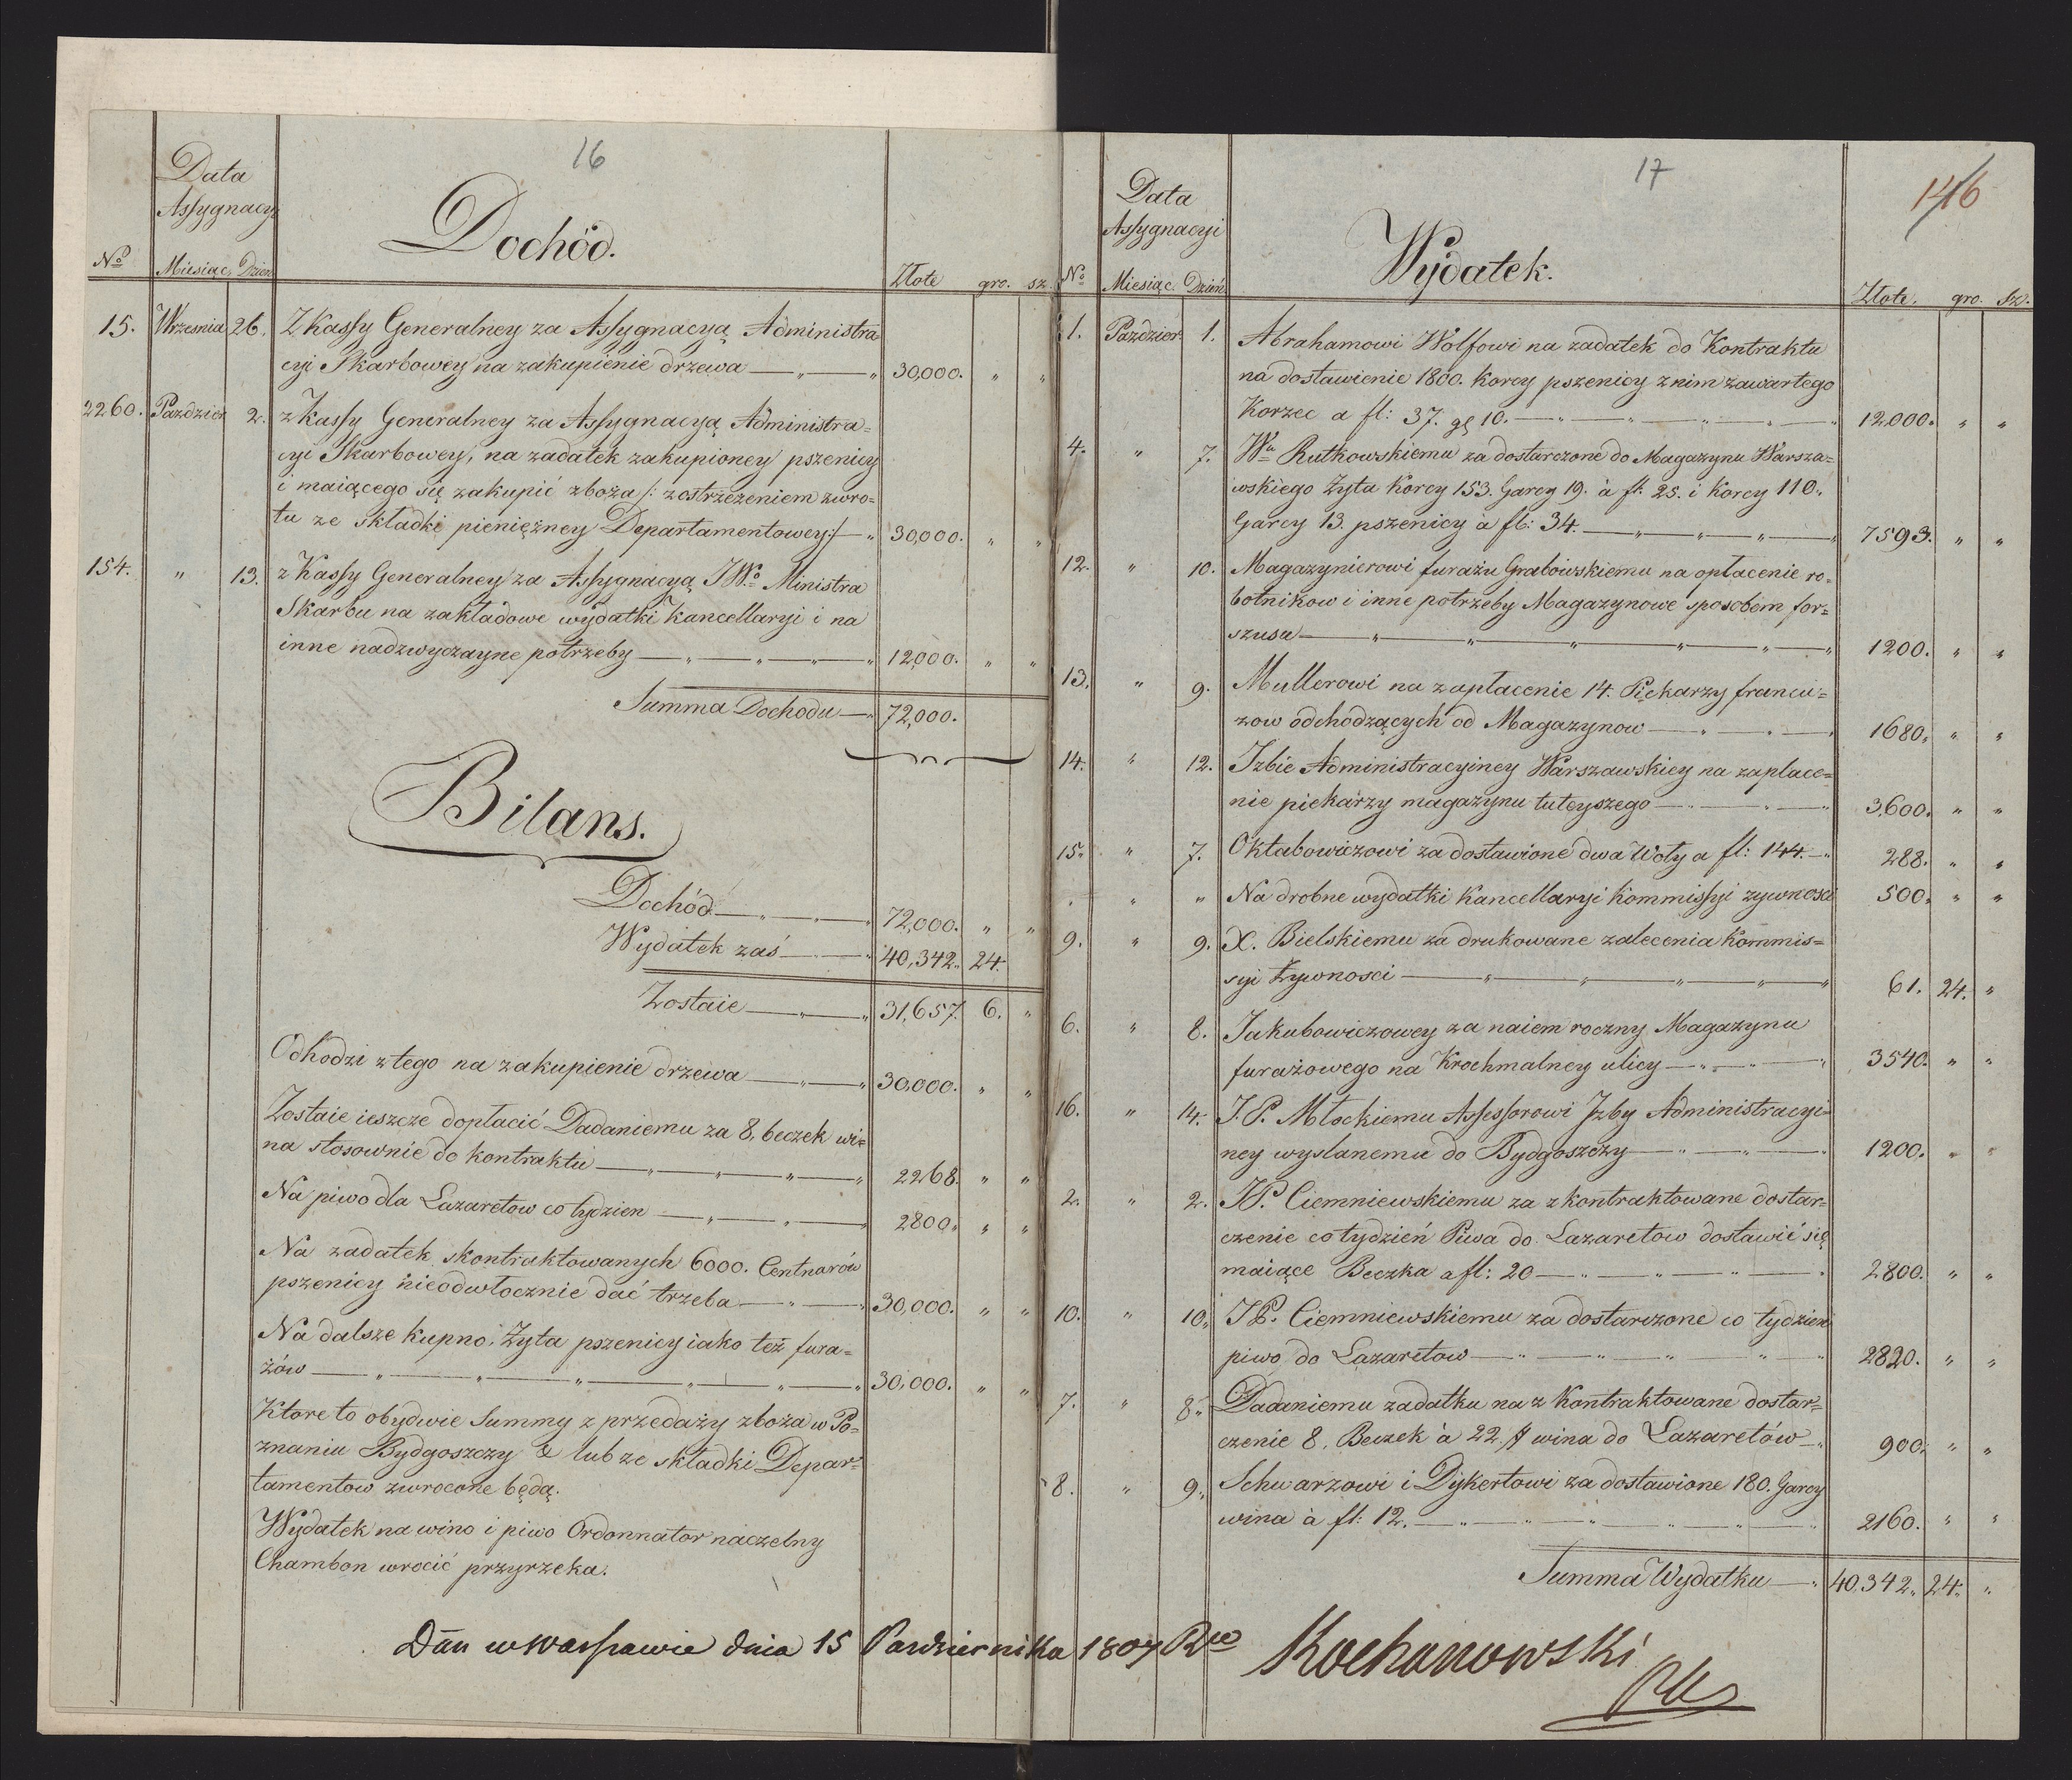 16
Data
Assygnacyi
Dochód.
No Miesiąc. Dzień Złote gro. sz.
15. Wrzesnia 26. Z Kassy Generalney za Assygnacyą Administra
cyi Skarbowey na zakupienie drzewa — „ — „ 30,000. „ „
2260. Pazdzier 2. z Kassy Generalney za Assygnacyą Administra=
cyi Skarbowey, na zadatek zakupioney pszenicy
i maiącego się zakupić zboża /: zostrzeżeniem zwro=
tu ze składki pieniężney Departamentowey :/ — „ 30,000. „ „
154. „ 13. z Kassy Generalney za Assygnacyą JWo Ministra
Skarbu na zakładowe wydatki Kancellaryi i na
inne nadzwyczayne potrzeby — „ — „ — „ — „ 12,000. „ „
Summa Dochodu — „ 72,000.
Bilans.
Dochód — „ — „ — „ 72,000. „ „
Wydatek zaś — „ — „ 40,342. 24.
Zostaie — „ — „ 31,657. 6. „
Odhodzi z tego na zakupienie drzewa — „ — „ 30,000. „ „
Zostaie ieszcze dopłacić Dadaniemu za 8. beczek wi=
na stosownie do kontraktu — „ — „ — „ — „ 2268. „ „
Na piwo dla Lazaretow co tydzien — „ — „ — „ 2800. „ „
Na zadatek skontraktowanych 6000. Centnarów
pszenicy nieodwłocznie dać trzeba — „ — „ 30,000. „ „
Na dalsze kupno Żyta pszenicy iako też fura=
żów — „ — „ — „ — „ — „ — „ 30,000. „ „
Ktore to obydwie Summy z przedaży zboża w Po=
znaniu Bydgoszczy & lub ze składki Depar=
tamentow zwrocone będą.
Wydatek na wino i piwo Ordonnator naczelny
Chambon wrocić przyrzeka.
Dän w Warszawie dnia 15 Pazdziernika 1807 Rto
17
146
Data
Assygnacyi
Wydatek.
No Miesiąc. Dzień Złote. gro. sz.
1. Pazdzier. 1. Abrahamowi Wolfowi na zadatek do Kontraktu
na dostawienie 1800. Korcy pszenicy z nim zawartego
Korzec a fl: 37. gl 10. — „ — „ — „ — „ 12000. „ „
4. „ 7. Wu Rutkowskiemu za dostarczone do Magazynu Warsza=
wskiego Żyta Korcy 153. Garcy 19. à fl: 25. i Korcy 110.
Garcy 13. pszenicy à fl: 34. — „ — „ — „ — „ 7593. „ „
12. „ 10. Magazynierowi furażu Grabowskiemu na opłacenie ro=
botnikow i inne potrzeby Magazynowe sposobem for=
szusa — „ — „ — „ — „ — „ — „ 1200. „ „
13. „ 9. Mullerowi na zapłacenie 14. Piekarzy francu=
zow odchodzących od Magazynow — „ — „ — „ 1680. „ „
14. „ 12. Izbie Administracyiney Warszawskiey na zapłace=
nie piekarzy magazynu tuteyszego — „ — „ — „ 3,600. „ „
15. „ 7. Oktabowiczowi za dostawione dwa Woły a fl: 144. — „ 288. „ „
„ „ „ Na drobne wydatki Kancellaryi Kommissyi zywnosci 500. „ „
9. „ 9. X. Bielskiemu za drukowane zalecenia Kommis=
syi Żywnosci — „ — „ — „ — „ — „ 61. 24. „
6. „ 8. Jakubowiczowey za naiem roczny Magazynu
furażowego na Krochmalney ulicy — „ — „ — „ 3540. „ „
16. „ 14. J. P. Młockiemu Assessorowi Izby Administracyi=
ney wysłanemu do Bydgoszczy — „ — „ — „ 1200. „ „
2. „ 2. JP. Ciemniewskiemu za zkontraktowane dostar=
czenie co tydzień Piwa do Lazaretow dostawić się
maiące Beczka a fl: 20 — „ — „ — „ — „ 2800. „ „
10. „ 10. JP. Ciemniewskiemu za dostarczone co tydzien
piwo do Lazaretow — „ — „ — „ — „ — „ 2820. „ „
7. „ 8. Dadaniemu zadatku na z Kontraktowane dostar=
czenie 8. Beczek à 22. # wina do Lazaretów — „ 900. „ „
8. „ 9. Schwarzowi i Dykertowi za dostawione 180. Garcy
wina à fl: 12. — „ — „ — „ — „ — „ — „ 2160. „ „
Summa Wydatku — „ 40,342. 24. „
Kochanowski